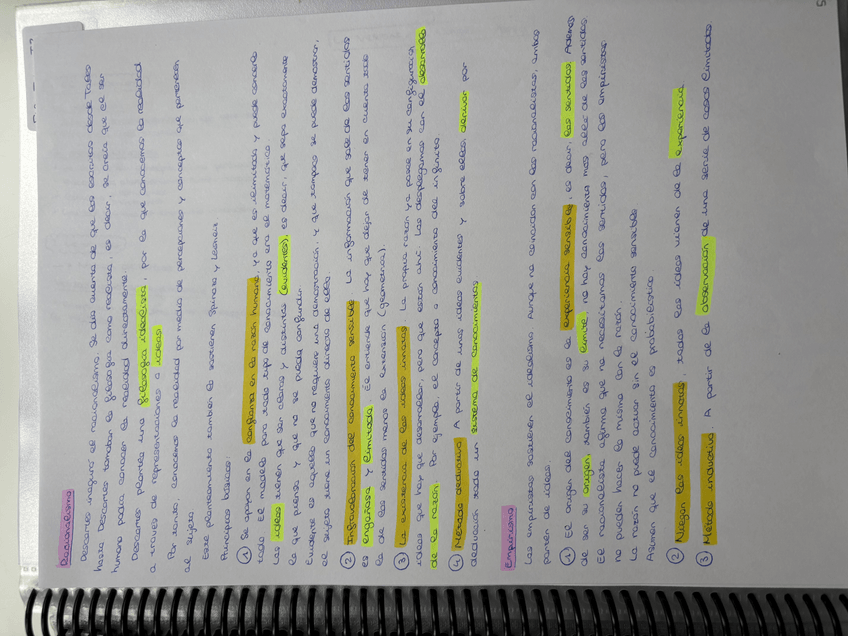 Racionalismo
Descartes inaguró el racionalismo. Se dio cuenta de que los escritos desde Tales
hasta Descartes tomaban la filosofía como realista, es decir, se creía que el ser
humano podía conocer la realidad directamente.
Descartes plantea una filosofía idealista, por la que conocemos la realidad
a través de representaciones o ideas
Por tanto, conocemos la realidad por medio de percepciones y conceptos que pertenecen
al sujeto
Este planteamiento también lo sostienen Spinoza y Leibniz
Principios básicos:
① Se apoyan en la confianza en la razón humana, ya que es ilimitada y puede conocerlo
todo. El modelo para todo tipo de conocimiento era el matemático
Las ideas tienen que ser claras y distintas (evidentes), es decir, que sepa exactamente
lo que piensa y que no se pueda confundir.
Evidente es aquello que no requiere una demostración, y que tampoco se puede demostrar,
el sujeto tiene un conocimiento directo de ello.
② Infravaloración del conocimiento sensible. La información que sale de los sentidos
es engañosa y limitada. Él entiende que hay que dejar de tener en cuenta todo
lo de los sentidos menos la extensión (geometría).
③ La existencia de las ideas innatas. La propia razón ya posee en su configuración
ideas que hay que desarrollar, pero que están ahí. Las desplegamos con el desarrollo
de la razón. Por ejemplo, el concepto o conocimiento del infinito.
④ Método deductivo. A partir de unas ideas evidentes y sobre ellas, derivan por
deducción todo un sistema de conocimientos
Empirismo
Los empiristas sostienen el idealismo. Aunque no coincidan con los racionalistas, ambos
parten de ideas.
① El origen del conocimiento es la experiencia sensible, es decir, los sentidos. Además
de ser su origen, también es su límite, no hay conocimiento más allá de los sentidos.
El racionalista afirma que no necesitamos los sentidos, pero los empiristas
no pueden hacer lo mismo con la razón.
La razón no puede actuar sin el conocimiento sensible
Asumen que el conocimiento es probabilístico.
② Niegan las ideas innatas, todas las ideas vienen de la experiencia
③ Método inductivo. A partir de la observación de una serie de casos limitados.
5